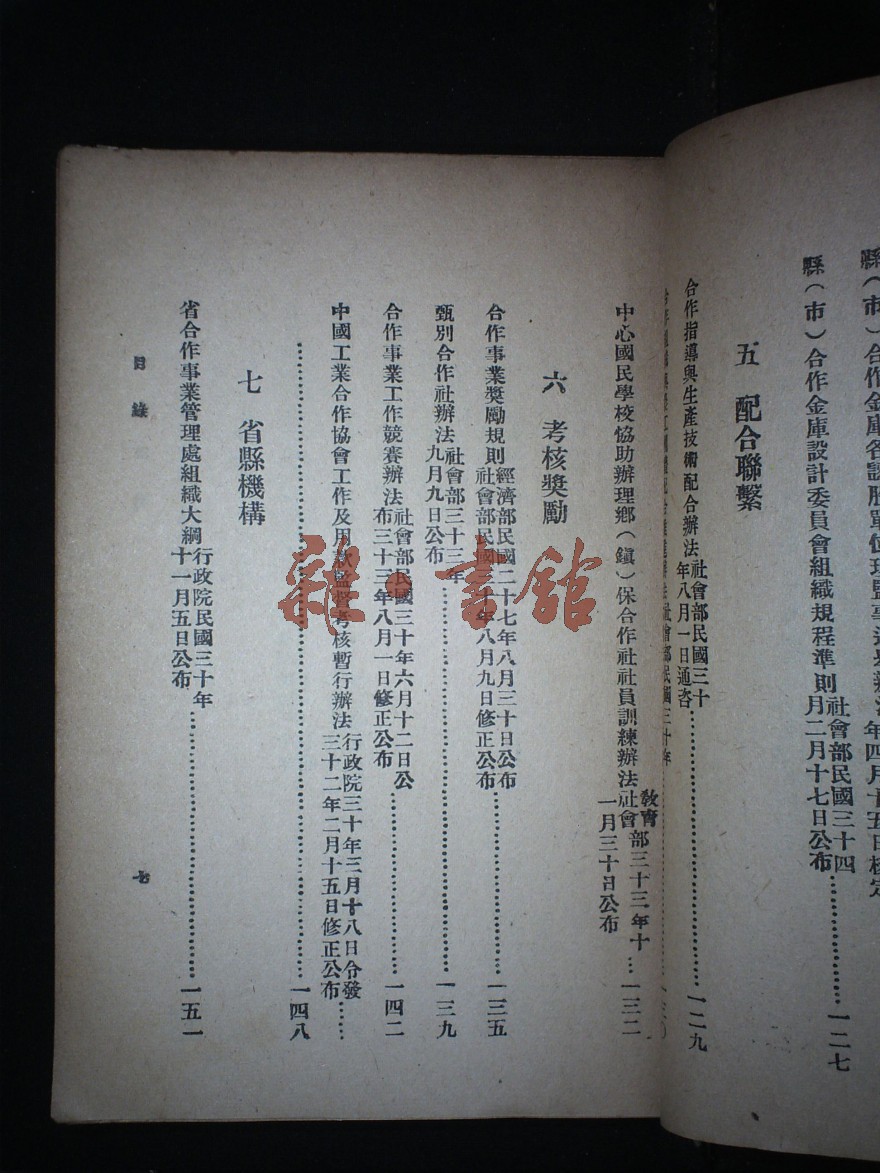 縣(市)合作金庫各認股單位
縣(市)合作金庫設計委員會組織規程準則社會部民國三十四
月二月十七日公布……一二七
五 配合聯繫
合作指導與生產技術配合辦法社會部民國三十
年八月一日通咨……一二九
社會部民國三十年……一三〇
中心國民學校協助辦理鄉(鎮)保合作社社員訓練辦法教育部三十三年十
社會一月三十日公布…一三二
六 考核獎勵
合作事業獎勵規則經濟部民國二十七年八月三十日公布
社會部民國三十年八月九日修正公布……一三五
甄別合作社辦法社會部三十三年
九月九日公布……一三九
合作事業工作競賽辦法社會部民國三十年六月十二日公
布三十三年八月一日修正公布……一四二
中國工業合作協會工作及用款監督考核暫行辦法行政院三十年三月十八日令發
三十二年二月十五日修正公布……
……一四八
七 省縣機構
省合作事業管理處組織大綱行政院民國三十年
十一月五日公布……一五一
目錄
七
雜書館